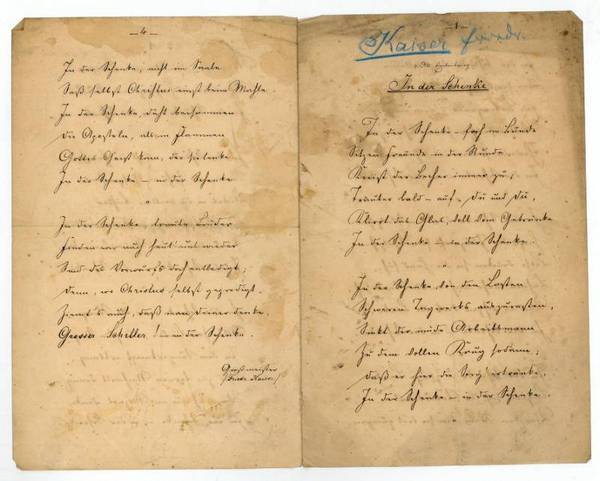 — 4 —
In der Schenke, nicht im Saale
Saß selbst Christus einst beim Mahle
In der Schenke, dicht beisammen
Die Aposteln, als in Flammen
Gottes Geist kam, der
In der Schenke – in der Schenke
In der Schenke, traute Brüder
finden wir uns heut' und wieder
Sind des Vorwurfs doch entledigt;
Denn, wo Christus selbst gepredigt
Ziemt's auch, daß man seiner denke
Grosser Schiller! – in der Schenke.
Großmeister
— 1 —
Kaiser Friedr.
In der Schenke
In der Schenke – hoch im Bunde
Sitzen Freunde in der Runde,
Kreist der Becher immer zu;
Trauter bald – auf „Du und Du,
Klirrt das Glas, voll vom Getränke
In der Schenke – in der Schenke.
In der Schenke von den Lasten
Schweren Tagwerks auszurasten,
Sinkt der müde Arbeitsmann
Zu dem vollen Krug sodann;
Daß er hier die Sorg' ertränke
In der Schenke – in der Schenke.